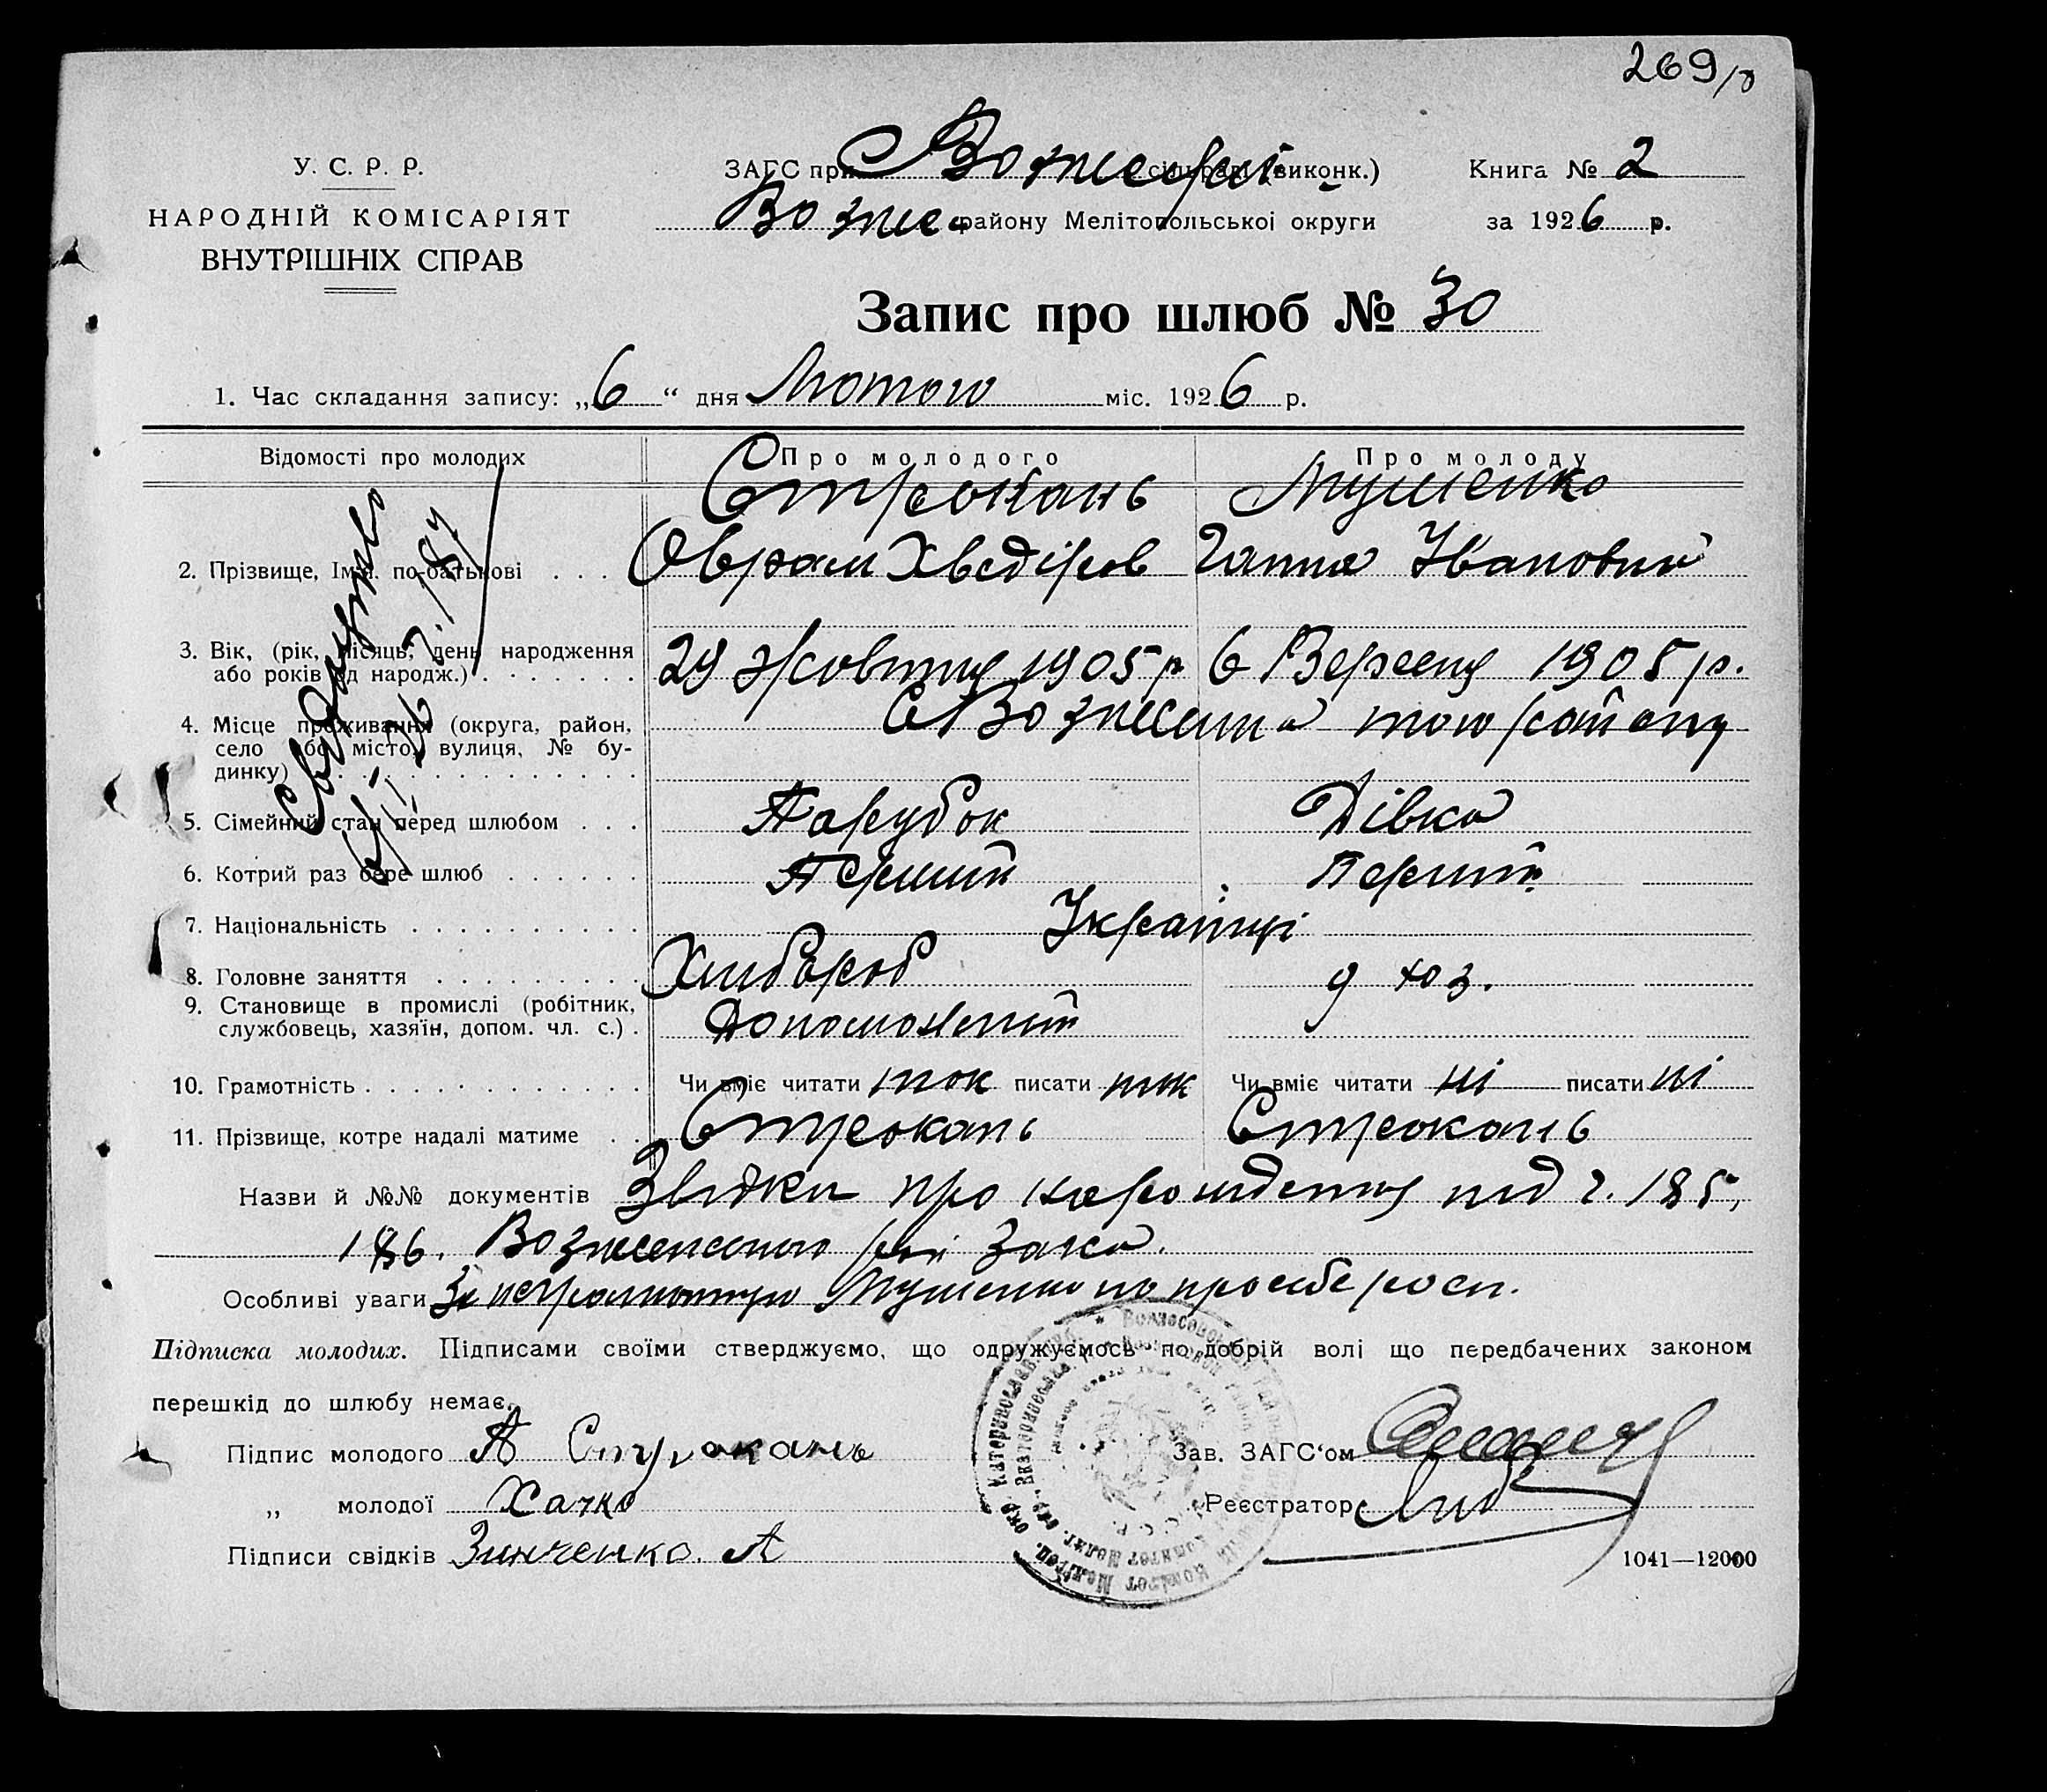 269
У. С. Р. Р.
НАРОДНІЙ КОМІСАРІЯТ
ВНУТРІШНІХ СПРАВ
ЗАГС при сільраді (виконк.)
Вознес району Мелітопольської округи
Книга № 2
за 1926 р.
Запис про шлюб № 30
1. Час складання запису: „6“ дня Лютого міс. 1926 р.
Відомості про молодих
Про молодого
Про молоду
2. Прізвище, Ім'я. по-батькові . . .
Строкань
Оврам Хведіров
Мушенко
Ганна
3. Вік, (рік, місяць, день народження або років від народж.) . . . . . . .
29 Жовтня 1905 р
6 Вересня 1905 р.
4. Місце проживання (округа, район,
село або місто, вулиця, № бу-
динку) . . . . . . . . . . . . . .
С Вознесенка того району
5. Сімейний стан перед шлюбом . . .
Парубок
Дівка
6. Котрий раз бере шлюб . . . . . .
Перший
Перший
7. Національність . . . . . . . . . .
Українці
8. Головне заняття . . . . . . . . .
Хлибороб
д хоз.
9. Становище в промислі (робітник,
службовець, хазяїн, допом. чл. с.) .
10. Грамотність . . . . . . . . . . . .
Чи вміє читати так писати так
Чи вміє читати ні писати ні
11. Прізвище, котре надалі матиме . .
Строкань
Строкань
Назви й №№ документів про народження під ч. 185,
186. Вознесенского Загса.
Особливі уваги За неграмотную Мушенко по просьбе росп.
Підписка молодих. Підписами своїми стверджуємо, що одружуємось по добрій волі що передбачених законом
перешкід до шлюбу немає.
Підпис молодого А Строкань
„ молодої Хачко
Підписи свідків Зинченко. А
Зав. ЗАГС‘ом
Реєстратор
1041—12000